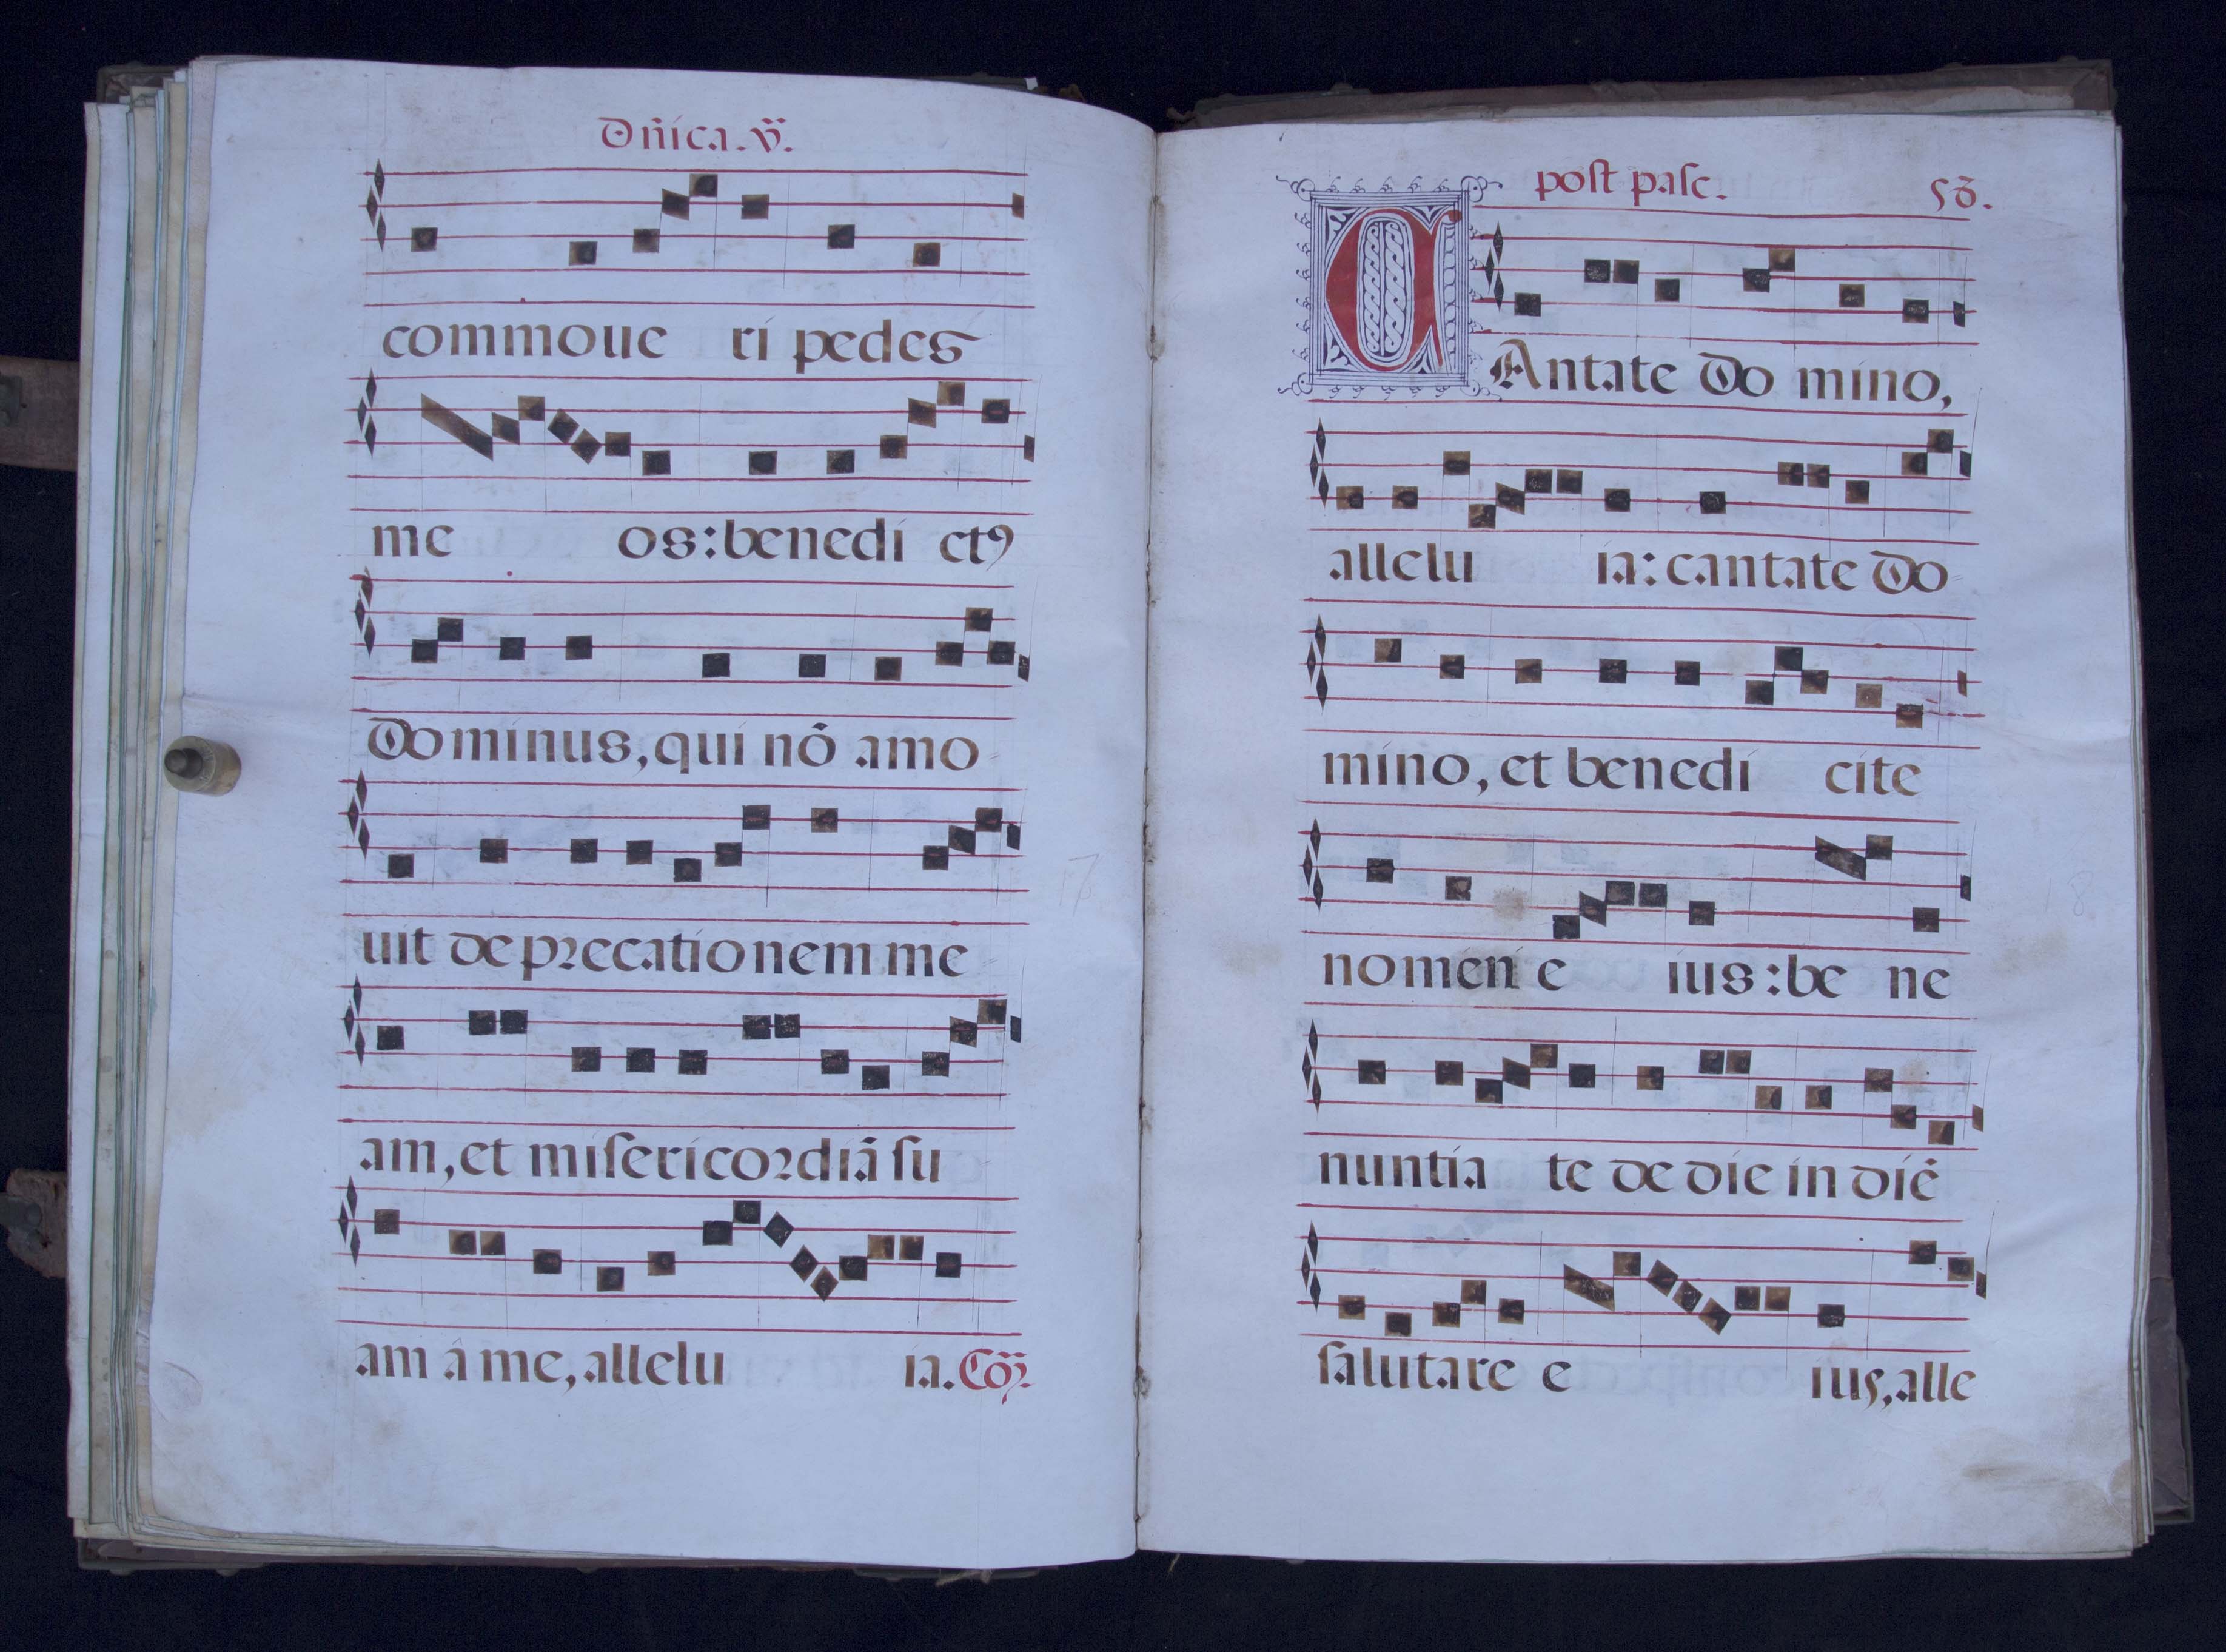 Dn̄ica. v̈.
commoue ri pedes
me os: benedi ctꝰ
Dominus, qui nō amo-
uit deprecationem me-
am, et miſericordiā ſu
am â me, allelu ia. Cōꝫ.
poſt paſc. 58.
CAntate Do mino,
allelu ia: cantate Do-
mino, et benedi cite
nomen e ius: be ne
nuntia te de die in diē
ſalutare e ius, alle